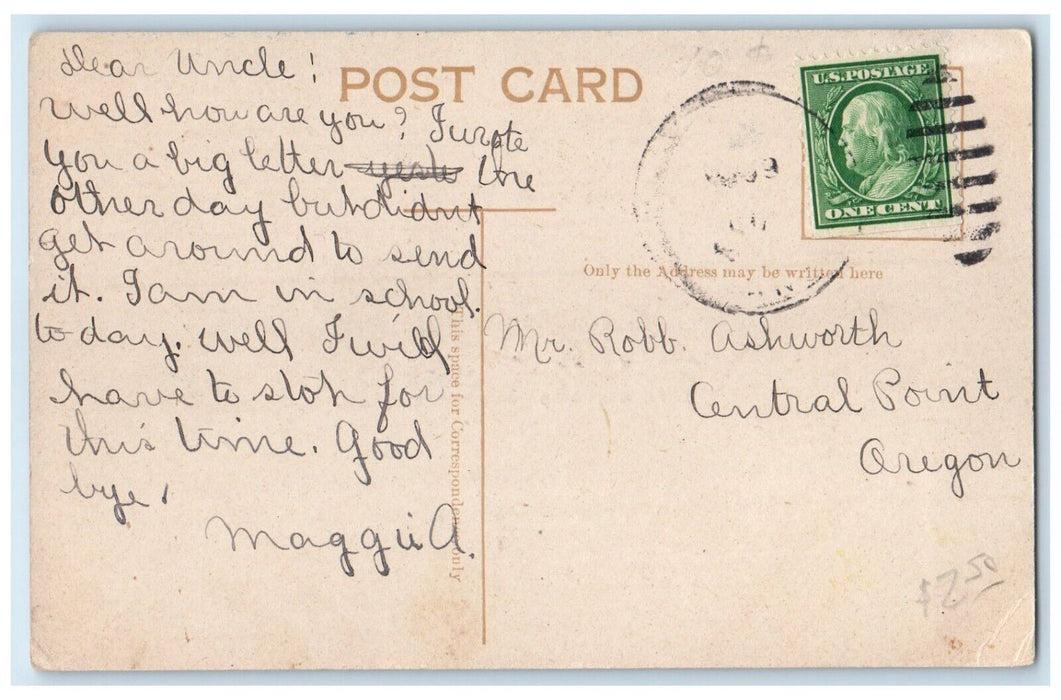 Dear Uncle!
POST CARD
well how are you? I wrote
you a big letter the
other day but didnt
get around to send
it. I am in school.
to day. well I will
have to stop for
this time. Good
bye,
Maggie A.
This space for Correspondence only
U.S. POSTAGE
ONE CENT
Only the Address may be written here
Mr. Robb. Ashworth
Central Point
Oregon
$2.50